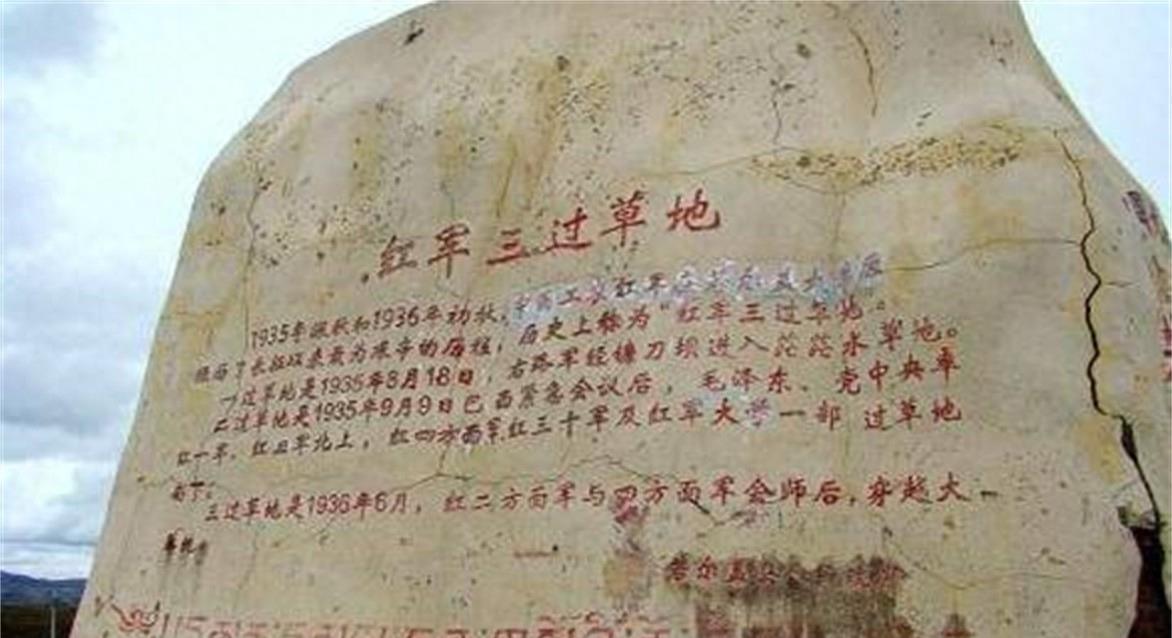 红军三过草地
1935年深秋和1936年初秋，中国工农红军在若尔盖大草原
经历了长征以来最为艰辛的历程，历史上称为“红军三过草地”。
一过草地是1935年8月18日，右路军经镰刀坝进入茫茫水草地。
二过草地是1935年9月9日巴西紧急会议后，毛泽东、党中央率
红一军、红三军北上，红四方面军红三十军及红军大学一部 过草地
南下。
三过草地是1936年6月，红二方面军与四方面军会师后，穿越大
草
若尔盖